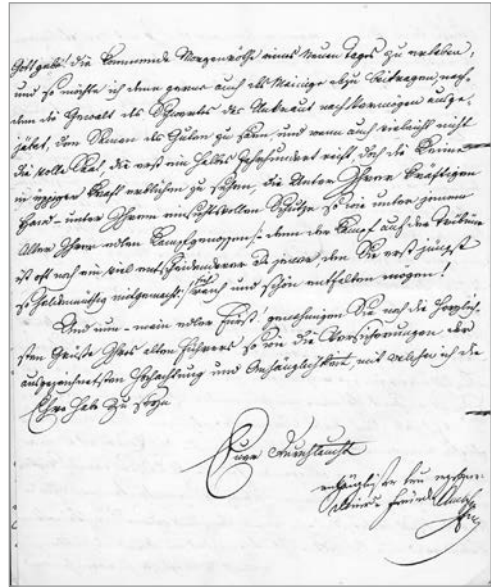 Gott gebe! die kommende Morgenröthe eines Neuen Tages zu erleben,
und so möchte ich denn gerne auch das Meinige dazu beitragen, nach-
dem die Gewalt des Schwertes das Unkraut nach Vermögen ausge-
jätet, den Samen des Guten zu säen, und wenn auch vielleicht nicht
die volle Saat, die erst ein halbes Jahrhundert reift, doch die Keime
in üppiger Kraft erblühen zu sehen, die Unter Ihrer kräftigen
Hand – unter Ihrem einsichtsvollen Schutze so wie unter jenem
Aller Ihrer edlen Kampfgenossen /: denn der Kampf auf der Tribüne
ist oft noch ein viel entscheidenderer als jener, den Sie erst jüngst
so heldenmüthig mitgemacht :/ sich rasch und schön entfalten mögen!
Und nun – mein edler Fürst, genehmigen Sie noch die herzlich-
sten Grüße Ihres alten Führers so wie die Versicherungen der
ausgezeichnetsten Hochachtung und Anhänglichkeit, mit welchen ich die
Ehre habe zu seyn
Euer Durchlaucht
treu ergebener